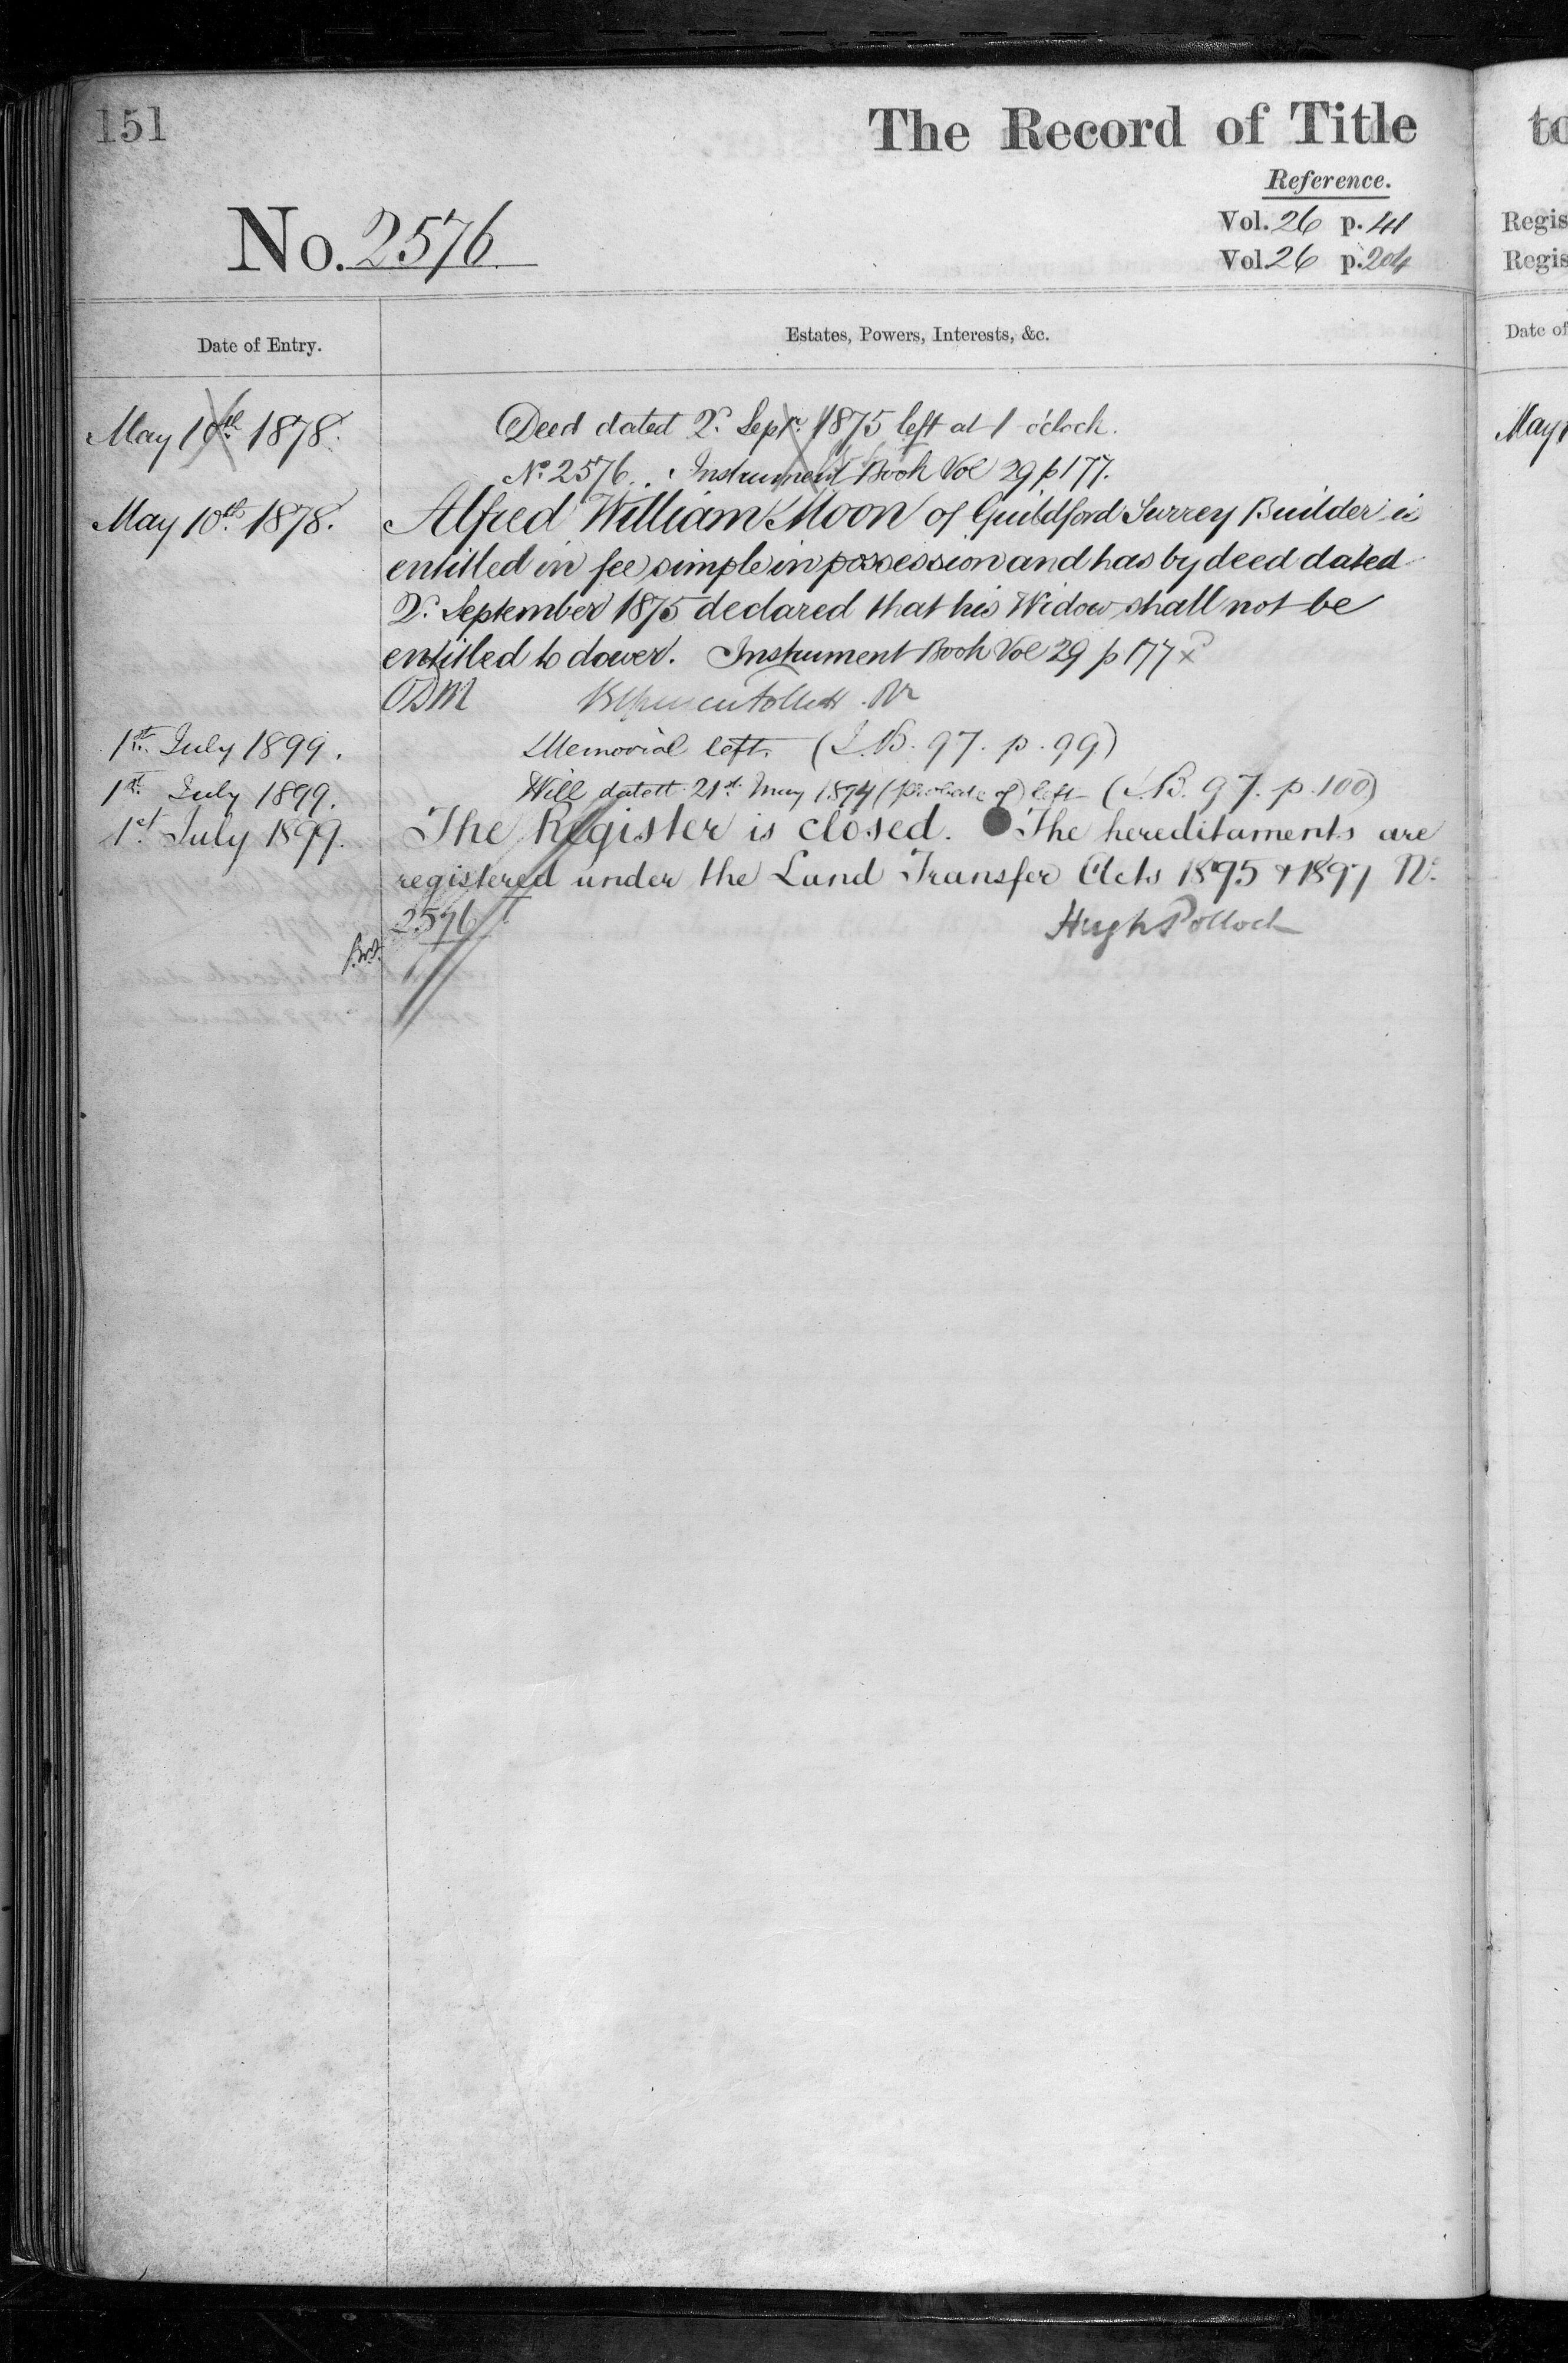 151
The Record of Title
Reference.
No. 2576
Vol. 26 p. 41
Vol. 26 p. 204
Date of Entry.
Estates, Powers, Interests, &c.
May 10th 1878. Deed dated 2d. Septr. 1875 left at 1 o'clock.
No. 2576. Instrument Book Vol 29 p 177.
May 10th. 1878. Alfred William Moon of Guildford Surrey Builder is
entitled in fee simple in possession and has by deed dated
2d. September 1875 declared that his Widow shall not be
entitled to dower. Instrument Book Vol 29 p 177
1st. July 1899. Memorial left. (I.B. 97. p. 99)
1st. July 1899. Will dated 21st. May 1894 (Probate of) left (I.B. 97. p. 100)
1st. July 1899. The Register is closed. The hereditaments are
registered under the Land Transfer Acts 1895 & 1897 No.
2576 Hugh Pollock
to
Regis
Regis
Date of
May 1